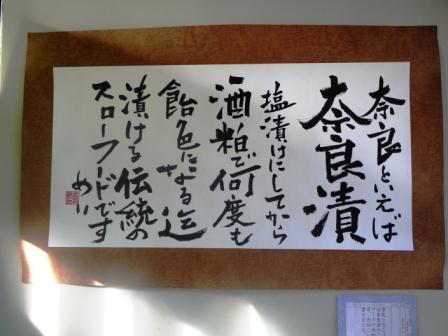 奈良といえば
奈良漬
塩漬けにしてから
酒粕で何度も
飴色になる迄
漬ける伝統の
スローフードです